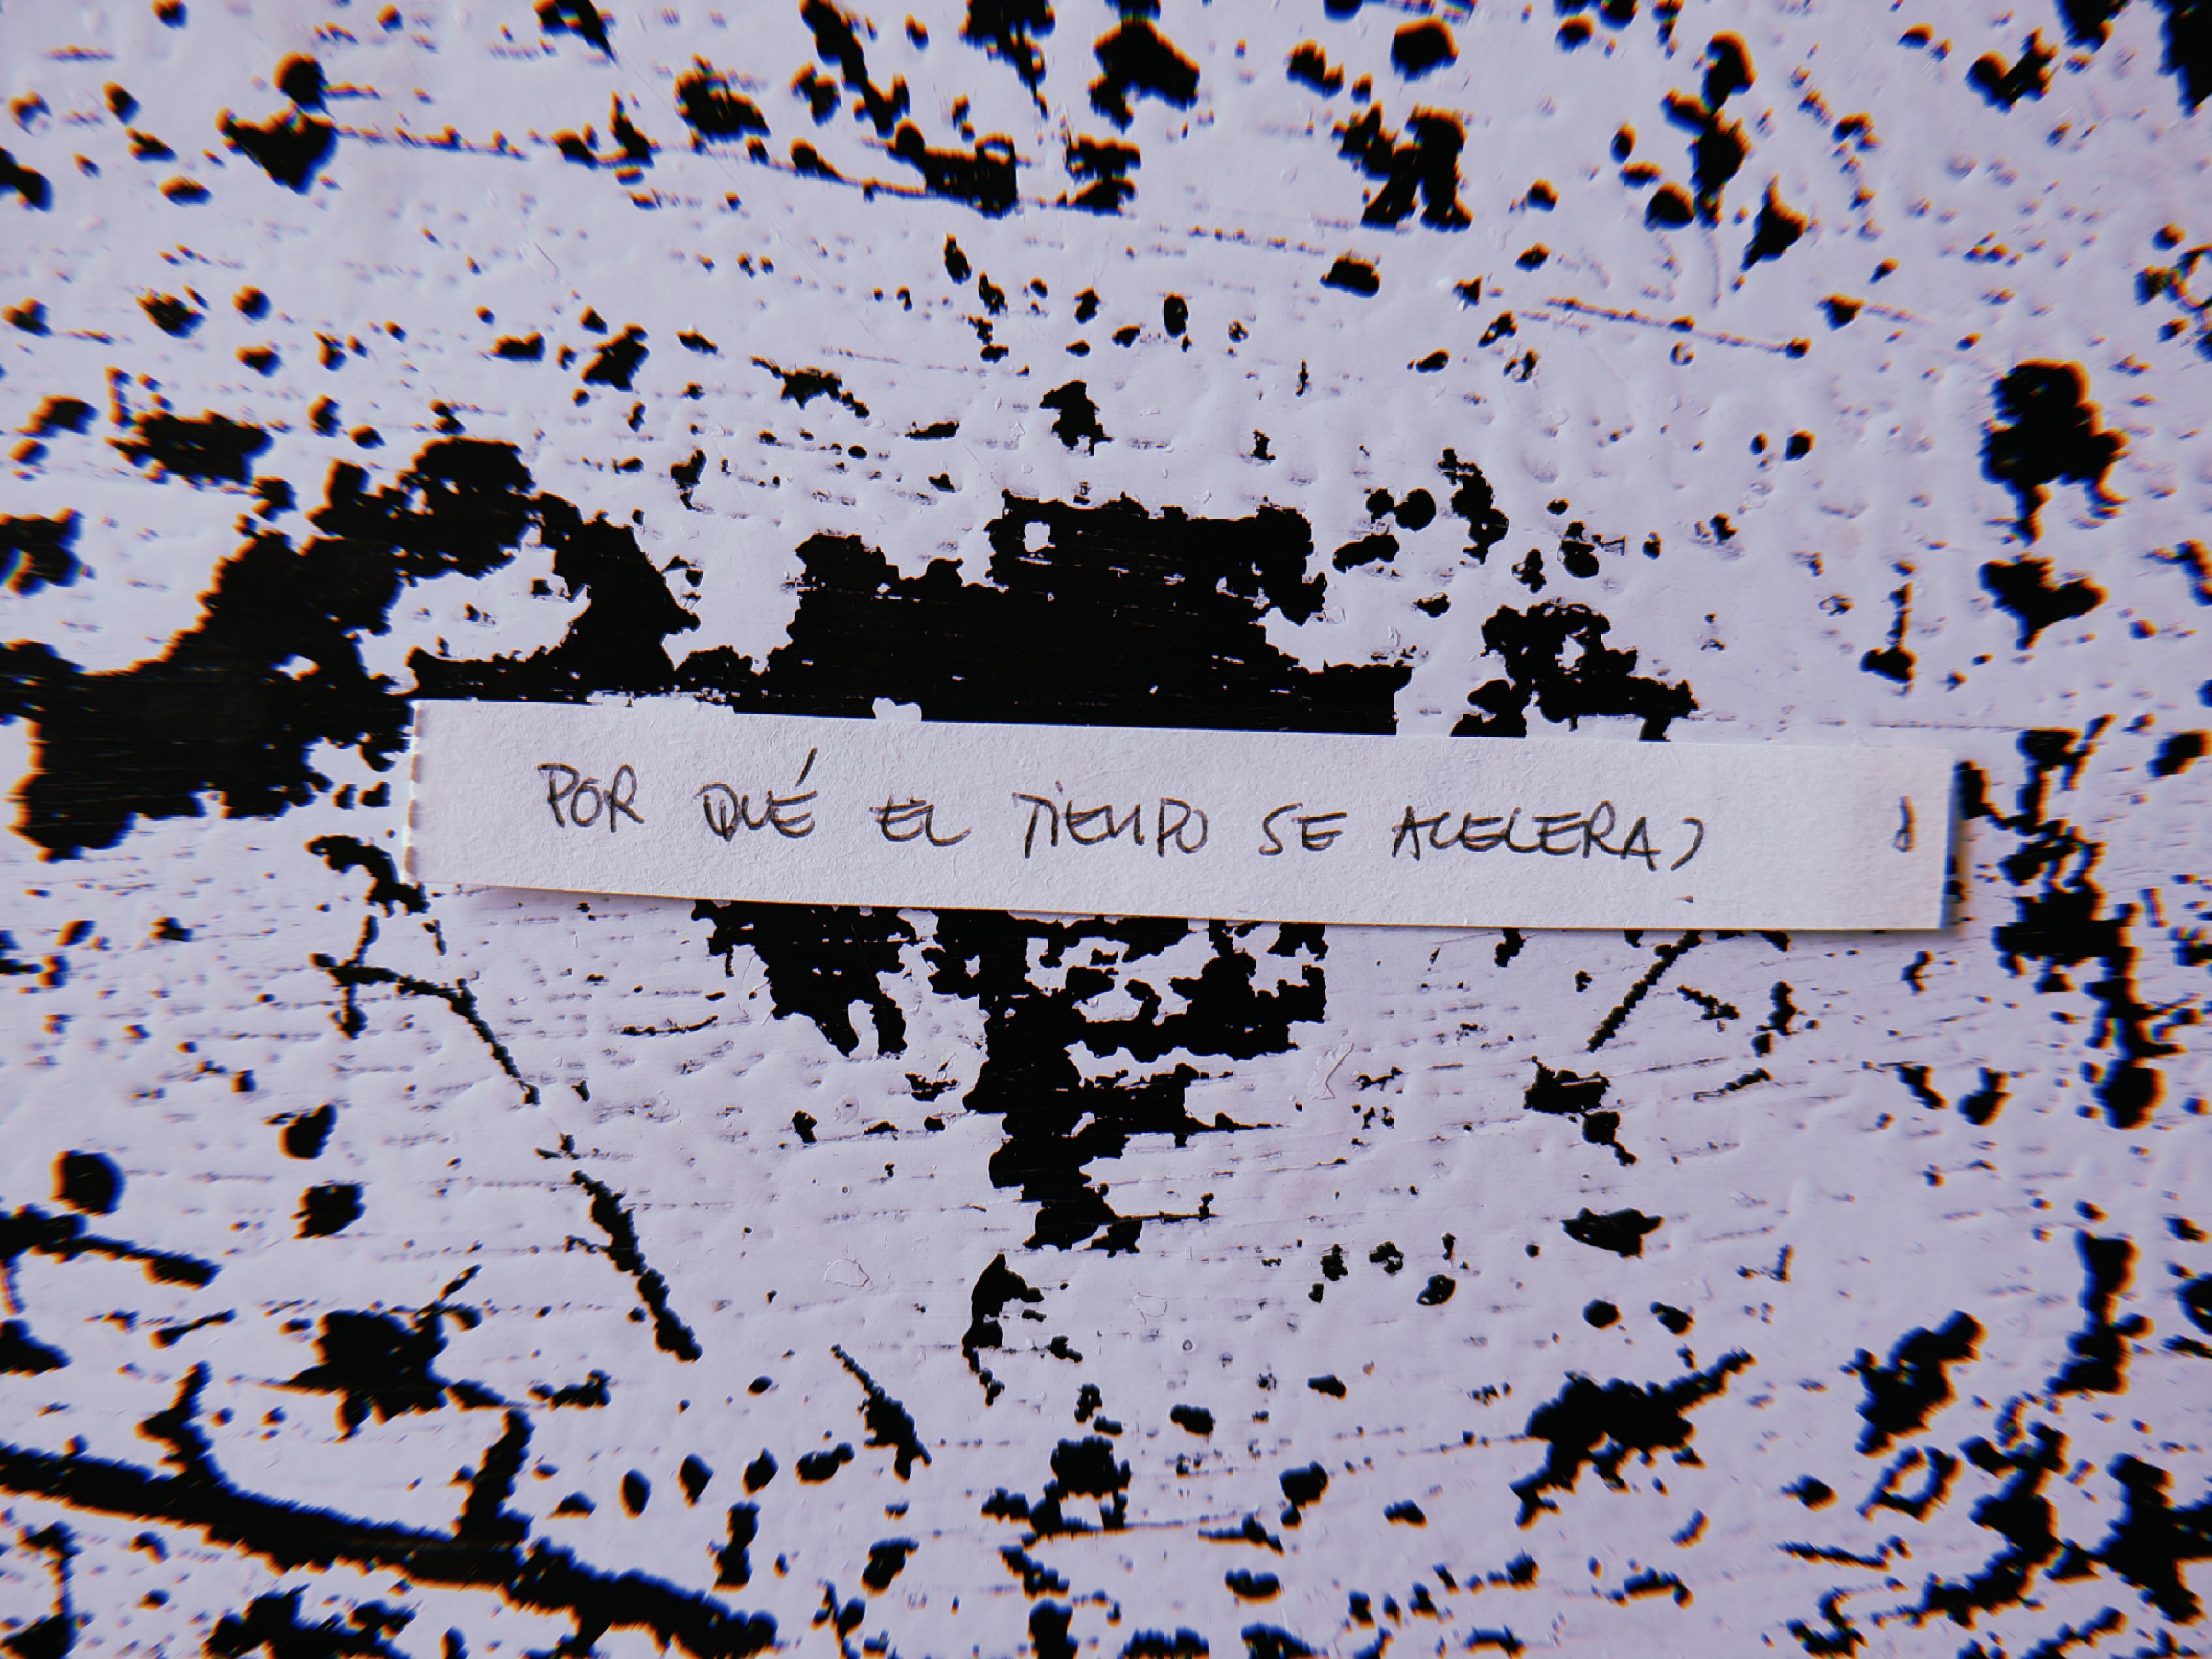 POR QUÉ EL TIEMPO SE ACELERA?